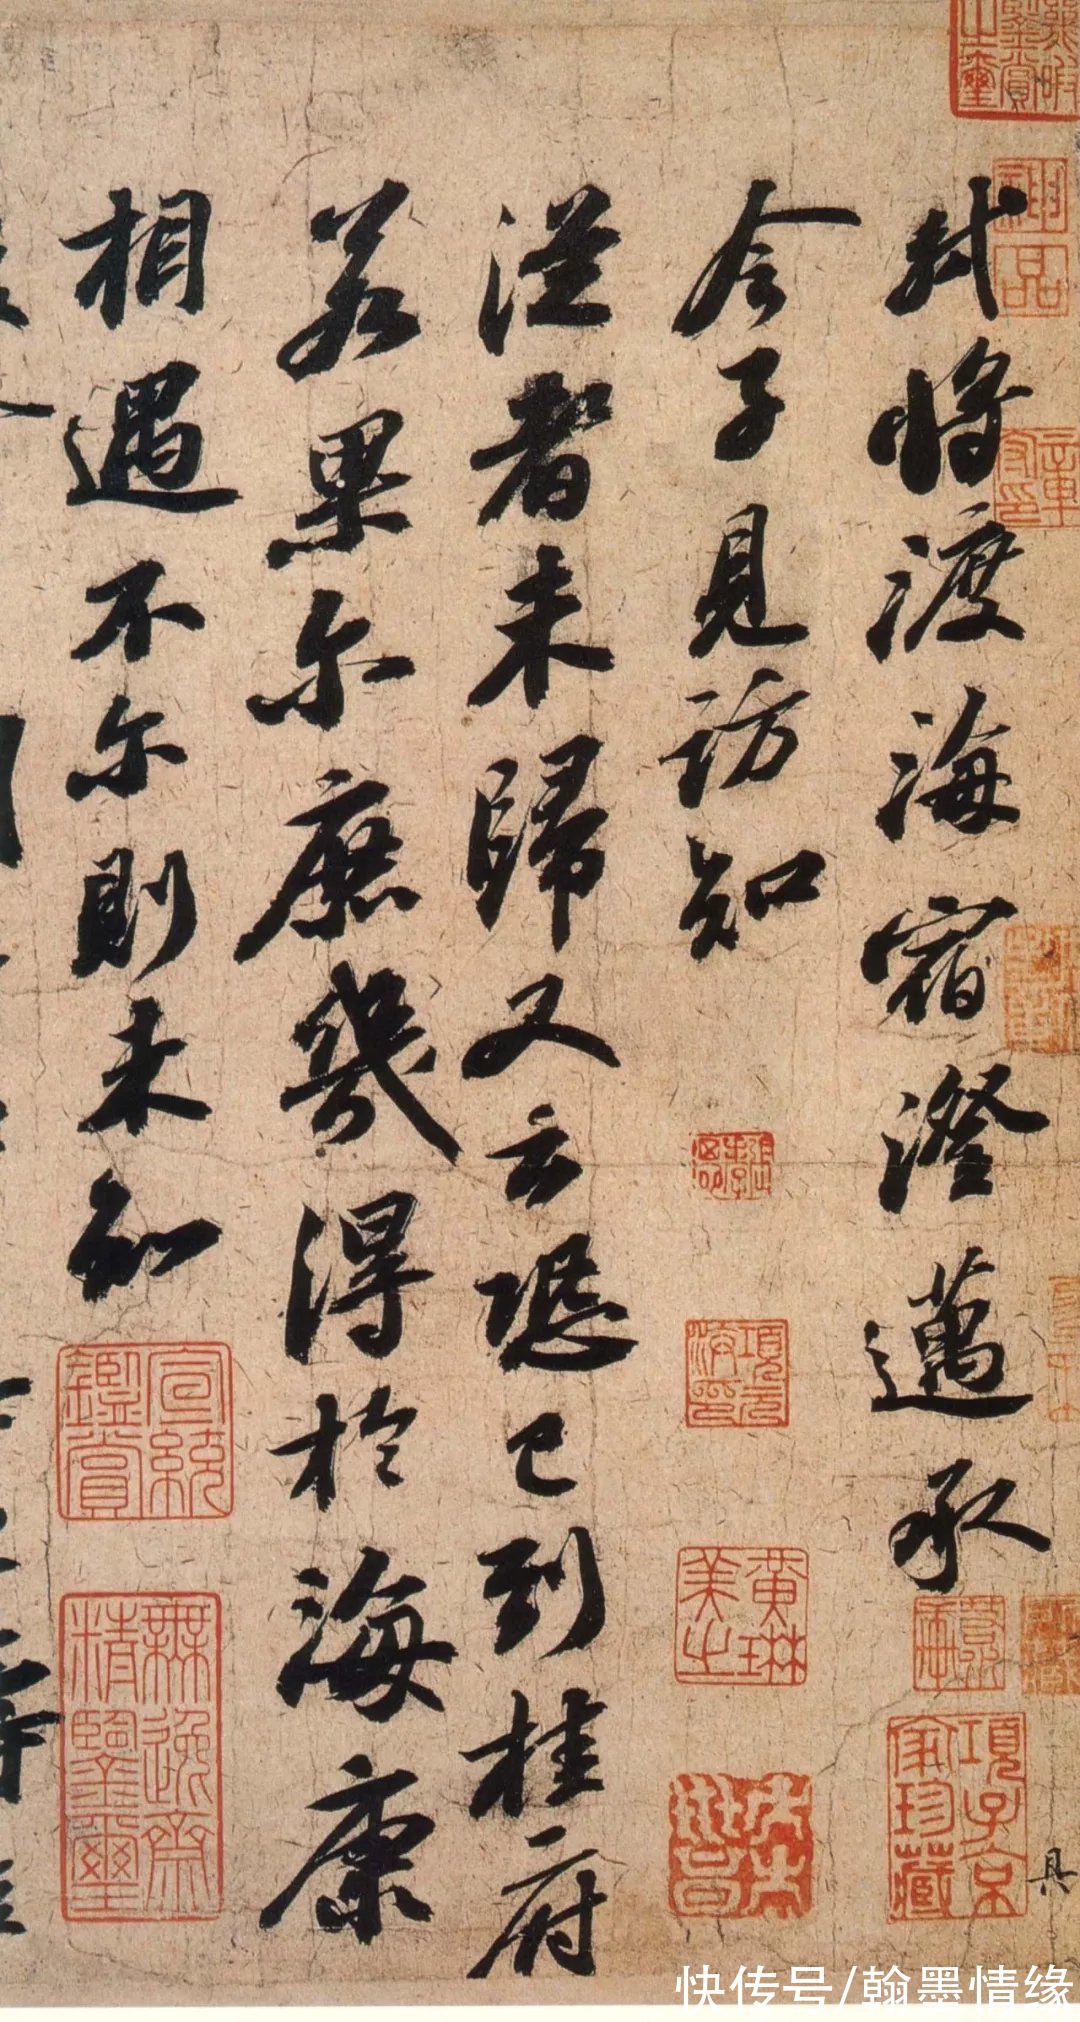 軾將渡海宿澄邁承
令子見訪知
從者未歸又云恐已到桂府
若果尔庶幾得於海康
相遇不尔則未知
神品
項元汴印
黃琳美之
項子京家珍藏
宣統鑑賞
無逸齋精鑒璽
具
快传号/翰墨情缘